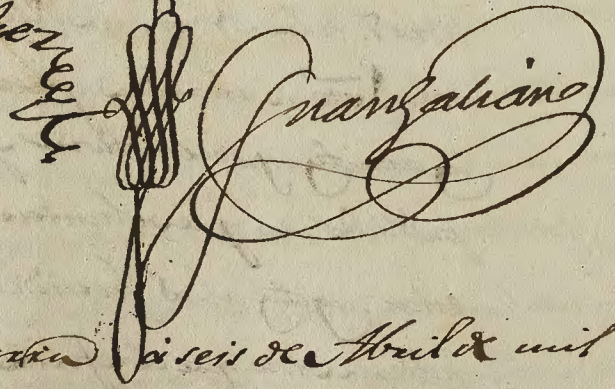 Juan Galiano
á seis de Abril de mil